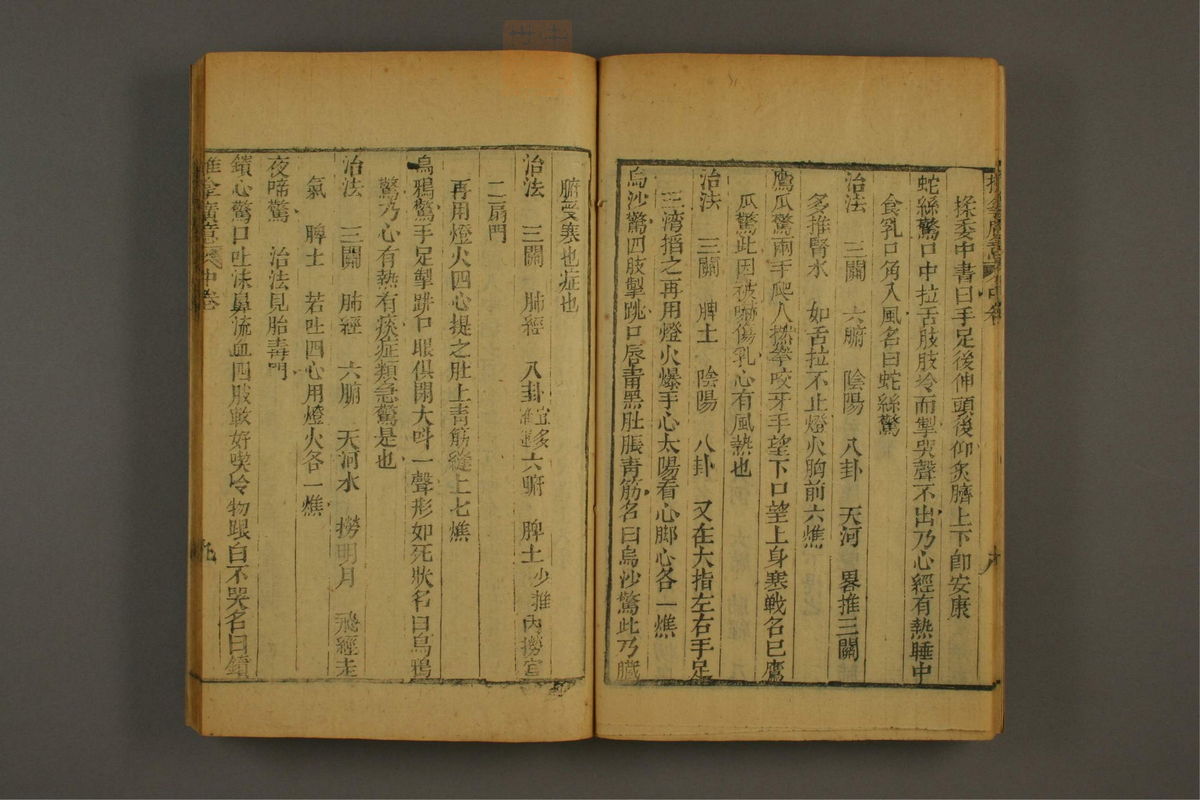 採委中書曰手足後伸頭後仰炙臍上下卽安康
蛇絲驚口中拉舌肢肢冷而掣哭聲不出乃心經有熱睡中
食乳口角入風名曰蛇絲驚
治法 三關 六腑 陰陽 八卦 天河 畧推三關
多推腎水 如舌拉不止燈火胸前六燋
鷹瓜驚兩手爬人撚拳咬牙手望下口望上身寒戰名曰鷹
瓜驚此因被嚇傷乳心有風熱也
治法 三關 脾土 陰陽 八卦 又在大指左右手足
三湾掐之再用燈火爆手心太陽看心脚心各一燋
烏沙驚四肢掣跳口唇青黑肚脹青筋名曰烏沙驚此乃臟
腑受寒也症也
治法 三關 肺經 八卦宜多推運六腑 脾土少推內撈宜
二扇門
再用燈火四心提之肚上青筋縫上七燋
烏鴉驚手足掣跳口眼俱閉大呌一聲形如死狀名曰烏鴉
驚乃心有熱有痰症類急驚是也
治法 三關 肺經 六腑 天河水 撈明月 飛經走
氣 脾土 若吐四心用燈火各一燋
夜啼驚 治法見胎毒門
鎖心驚口吐沫鼻流血四肢軟好喫冷物眼白不哭名曰鎖
推拿廣意 中卷
九